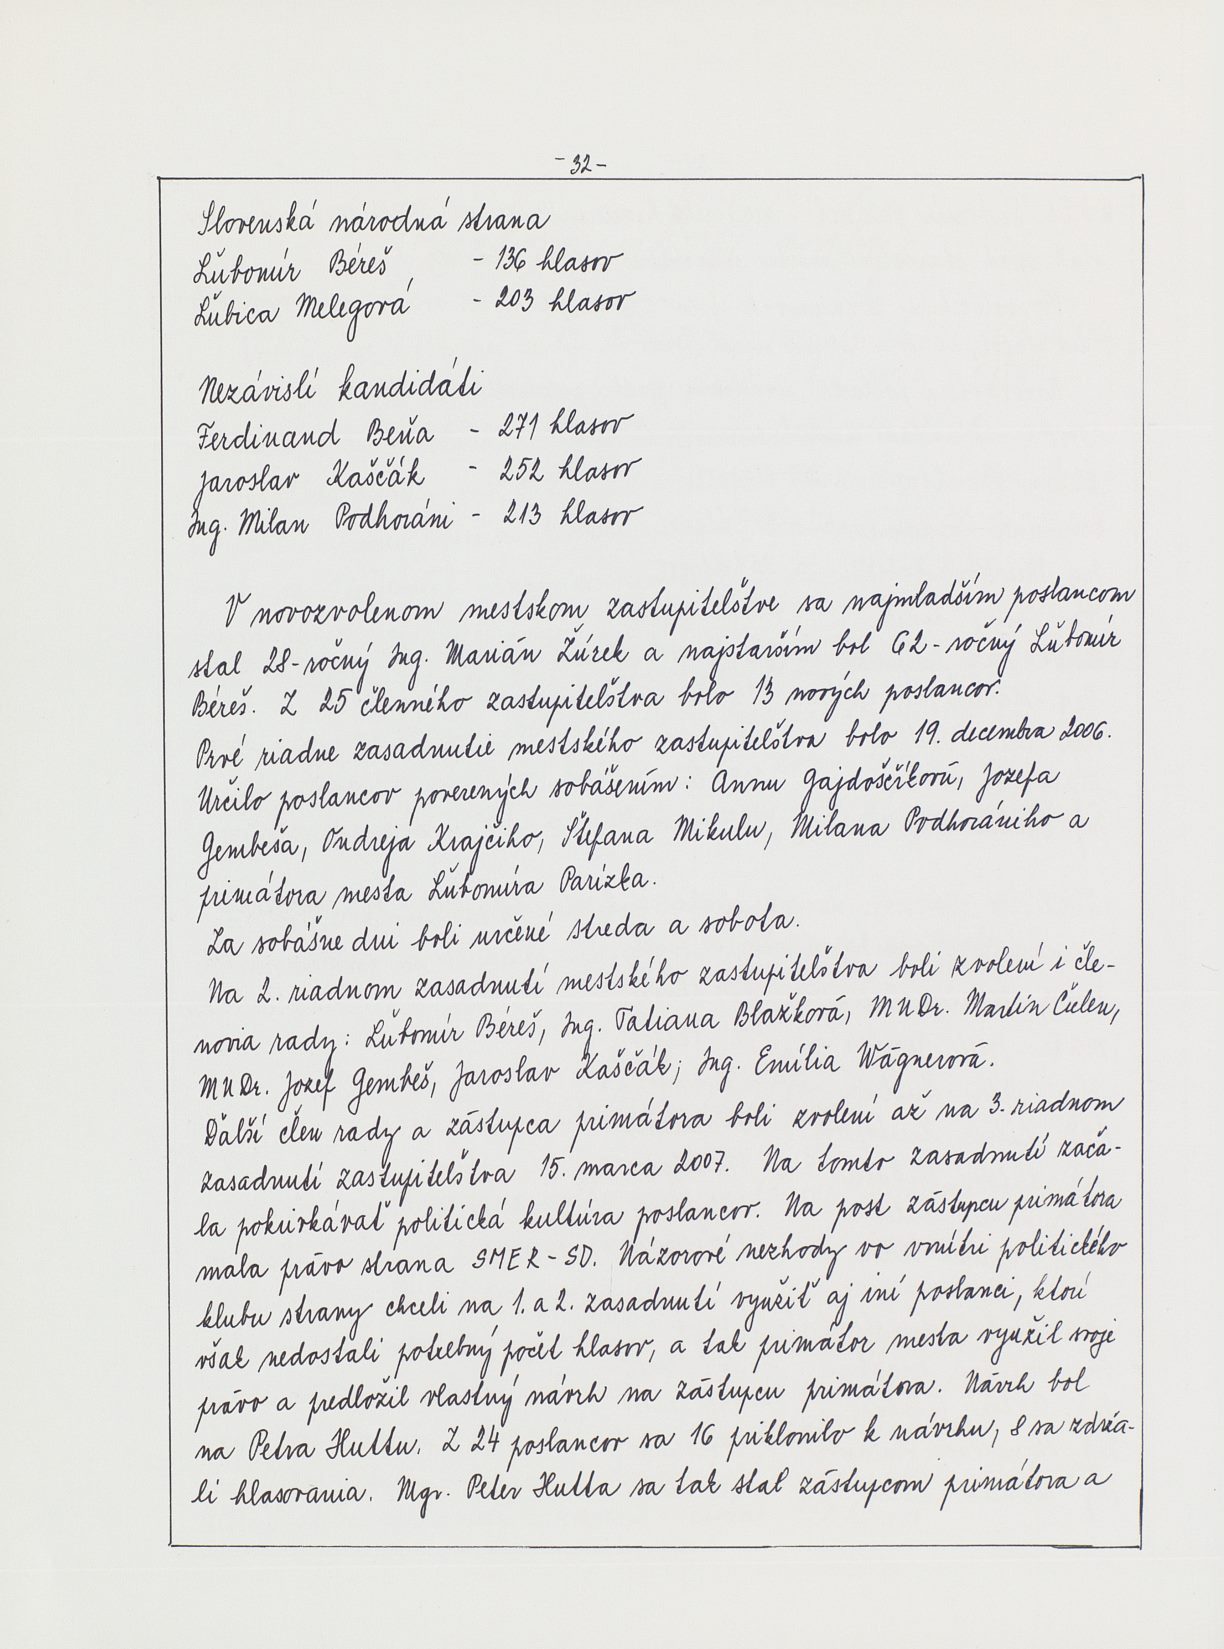 - 32 -
Slovenská národná strana
Ľubomír Béreš - 136 hlasov
Ľubica Melegová - 203 hlasov
Nezávislí kandidáti
Ferdinand Beňa - 271 hlasov
Jaroslav Kaščák - 252 hlasov
Ing. Milan Podhoráni - 213 hlasov
V novozvolenom mestskom zastupiteľstve sa najmladším poslancom
stal 28-ročný Ing. Marián Žúrek a najstarším bol 62-ročný Ľubomír
Béreš. Z 25 členného zastupiteľstva bolo 13 nových poslancov.
Prvé riadne zasadnutie mestského zastupiteľstva bolo 19. decembra 2006.
Určilo poslancov poverených sobášením: Annu Gajdoščíkovú, Jozefa
Gembeša, Ondreja Krajčiho, Štefana Mikulu, Milana Podhorániho a
primátora mesta Ľubomíra Parízka.
Za sobášne dni boli určené streda a sobota.
Na 2. riadnom zasadnutí mestského zastupiteľstva boli zvolení i čle-
novia rady: Ľubomír Béreš, Ing. Tatiana Blažková, MUDr. Martin Čulen,
MUDr. Jozef Gembeš, Jaroslav Kaščák; Ing. Emília Wágnerová.
Ďalší člen rady a zástupca primátora boli zvolení až na 3. riadnom
zasadnutí zastupiteľstva 15. marca 2007. Na tomto zasadnutí zača-
la pokuľkávať politická kultúra poslancov. Na post zástupcu primátora
mala právo strana SMER-SD. Názorové nezhody vo vnútri politického
klubu strany chceli na 1. a 2. zasadnutí využiť aj iní poslanci, ktorí
však nedostali potrebný počet hlasov, a tak primátor mesta využil svoje
právo a predložil vlastný návrh na zástupcu primátora. Návrh bol
na Petra Huttu. Z 24 poslancov sa 16 priklonilo k návrhu, 8 sa zdrža-
li hlasovania. Mgr. Peter Hutta sa tak stal zástupcom primátora a